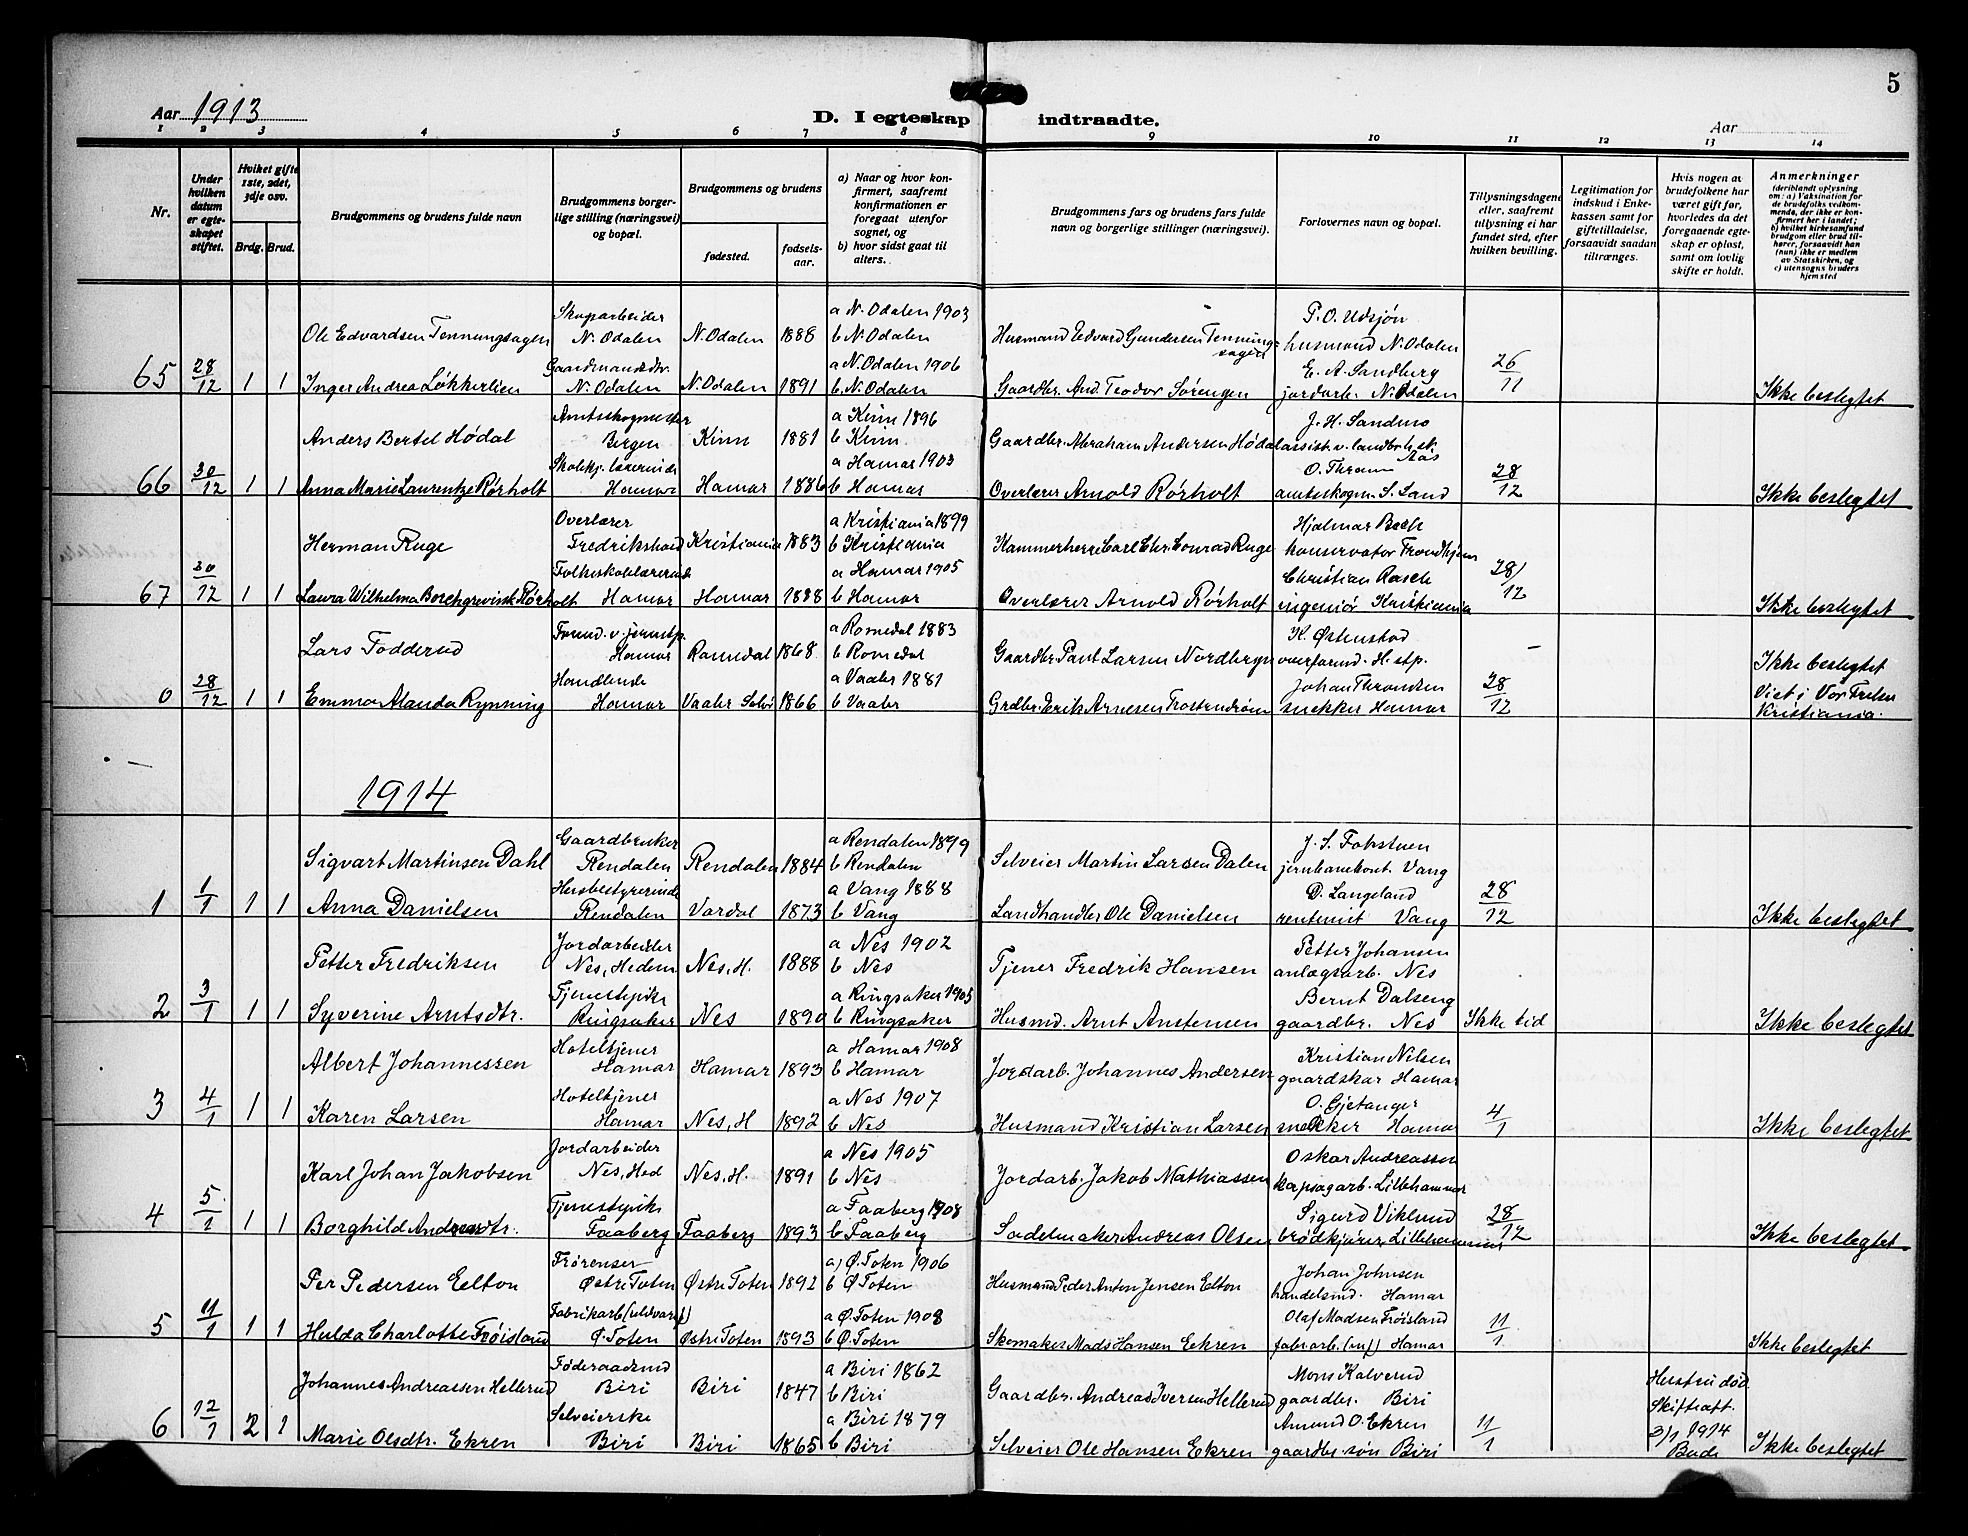 5
Aar 1913
D. I egteskap indtraadte.
Aar
1 2 3 4 5 6 7 8 9 10 11 12 13 14
Nr.
Under hvilken datum er egteskapet stiftet.
Hvilket gifte 1ste, 2det, 3dje osv.
Brdg. Brud.
Brudgommens og brudens fulde navn
Brudgommens borgerlige stilling (næringsvei) og bopæl.
Brudgommens og brudens
fødested. fødselsaar.
a) Naar og hvor konfirmert, saafremt konfirmationen er foregaat utenfor sognet, og
b) hvor sidst gaat til alters.
Brudgommens fars og brudens fars fulde navn og borgerlige stillinger (næringsvei).
Forlovernes navn og bopæl.
Tillysningsdagene eller, saafremt tillysning ei har fundet sted, efter hvilken bevilling.
Legitimation for indskud i Enkekassen samt for giftetilladelse, forsaavidt saadan tiltrænges.
Hvis nogen av brudefolkene har været gift før, hvorledes da det foregaaende egteskap er opløst, samt om lovlig skifte er holdt.
Anmerkninger
(deriblandt oplysning om: a) Vaksination for de brudefolks vedkommende, der ikke er konfirmert her i landet; b) hvilket kirkesamfund brudgom eller brud tilhører, forsaavidt han (hun) ikke er medlem av Statskirken, og c) utensogns bruders hjemsted
65 28/12 1 1
Ole Edvardsen Tenningsagen Skogarbeider N. Odalen N. Odalen 1888 a N. Odalen 1903 b N. Odalen Husmand Edvard Gundersen Tenningsagen P. O. Udsjön husmand N. Odalen 26/11
Inger Andrea Løkkerlien Gaardmandsdtr. N. Odalen N. Odalen 1891 a N. Odalen 1906 b N. Odalen Gaardbr. And. Teodor Sörengen E. A. Sandberg jordarb. N. Odalen Ikke beslegtet
66 30/12 1 1
Anders Bertel Hödal Amtsskogmester Bergen Kinn 1881 a Kinn 1896 b Kinn Gaardbr. Abraham Andersen Hödal J. H. Sandmo assist. v. landbr.h.sk. Aas 28/12
Anna Marie Laurentze Rörholt Skolekj. lærerinde Hamar Hamar 1886 a Hamar 1903 b Hamar Overlærer Arnold Rörholt O. Thram amtsskogm. S. Land Ikke beslegtet
67 30/12 1 1
Herman Ruge Overlærer Fredrikshald Kristiania 1883 a Kristiania 1899 b Kristiania Kammerherre Carl Chr. Conrad Ruge Hjalmar Bach konservator Trondhjem 28/12
Laura Wilhelma Borchgrevink Rörholt Folkeskolelærerinde Hamar Hamar 1888 a Hamar 1905 b Hamar Overlærer Arnold Rörholt Christian Rasch ingeniör Kristiania Ikke beslegtet
0 28/12 1 1
Lars Todderud Formd. v. jernstp. Hamar Romedal 1868 a Romedal 1883 b Romedal Gaardbr. Paul Larsen Nordbergm K. Östenstad overformd. H. stp. –
Emma Manda Rynning Handlende Hamar Vaaler Solör 1866 a Vaaler 1881 b Vaaler Grdbr. Erik Arnesen Johan Throndsen snekker Hamar 28/12 Ikke beslegtet Viet i Vor Frelser Kristiania.
1914
1 1/1 1 1
Sigvart Martinsen Dahl Gaardbruker Rendalen Rendalen 1884 a Rendalen 1899 b Rendalen Selveier Martin Larsen Dalen J. S. Fokstuen jernbanekont. Vang 28/12
Anna Danielsen Husbestyrerinde Rendalen Vardal 1873 a Vang 1888 b Vang Landhandler Ole Danielsen D. Langeland rentenist Vang Ikke beslegtet
2 3/1 1 1
Petter Fredriksen Jordarbeider Nes, Hedem Nes, H. 1888 a Nes 1902 b Nes Tjener Fredrik Hansen Petter Johansen anlægsarb. Nes
Syverine Arntsdtr. Tjenestepike Ringsaker Nes 1890 a Ringsaker 1905 b Ringsaker Husmd. Arnt Anstensen Bernt Dalseng gaardbr. Nes Ikke tid Ikke beslegtet
3 4/1 1 1
Albert Johannessen Hoteltjener Hamar Hamar 1893 a Hamar 1908 b Hamar Jordarb. Johannes Andersen Kristian Nilsen gaardskar Hamar
Karen Larsen Hoteltjener Hamar Nes, H 1892 a Nes 1907 b Nes Husmand Kristian Larsen O. Gjetanger snekker Hamar 4/1 Ikke beslegtet
4 5/1 1 1
Karl Johan Jakobsen Jordarbeider Nes, Hed Nes, H. 1891 a Nes 1905 b Nes Jordarb. Jakob Mathiassen Oskar Andreassen kapsagarb. Lillehammer
Borghild Andreasdtr. Tjenestepike Faaberg Faaberg 1893 a Faaberg 1908 b Faaberg Sadelmaker Andreas Olsen Sigurd Viklund brödkjörer Lillehammer 28/12 Ikke beslegtet
5 11/1 1 1
Per Pedersen Eelton Frörenser Östre Toten Östre Toten 1892 a) Ö. Toten 1906 b Ö. Toten Husmand Peder Anton Jensen Eelton Johan Johnsen handelsmd. Hamar
Hulda Charlotte Fröisland Fabrikarb (uldvaref) Ö. Toten Östre Toten 1893 a Ö. Toten 1908 b Ö. Toten Skomaker Mads Hansen Ekren Olaf Madsen Fröisland fabr.arb. Hamar 11/1 Ikke beslegtet
6 12/1 2 1
Johannes Andreassen Hellerud Föderaadsmd Biri Biri 1847 a Biri 1862 b Biri Gaardbr. Andreas Iversen Hellerud Mons Kalverud gaardbr. Biri Hustru död Skifteatt. 3/1 1914
Marie Olsdtr. Ekren Selveierske Biri Biri 1865 a Biri 1879 b Biri Selveier Ole Hansen Ekren Amund O. Ekren gaardbr. sön Biri 11/1 Ikke beslegtet